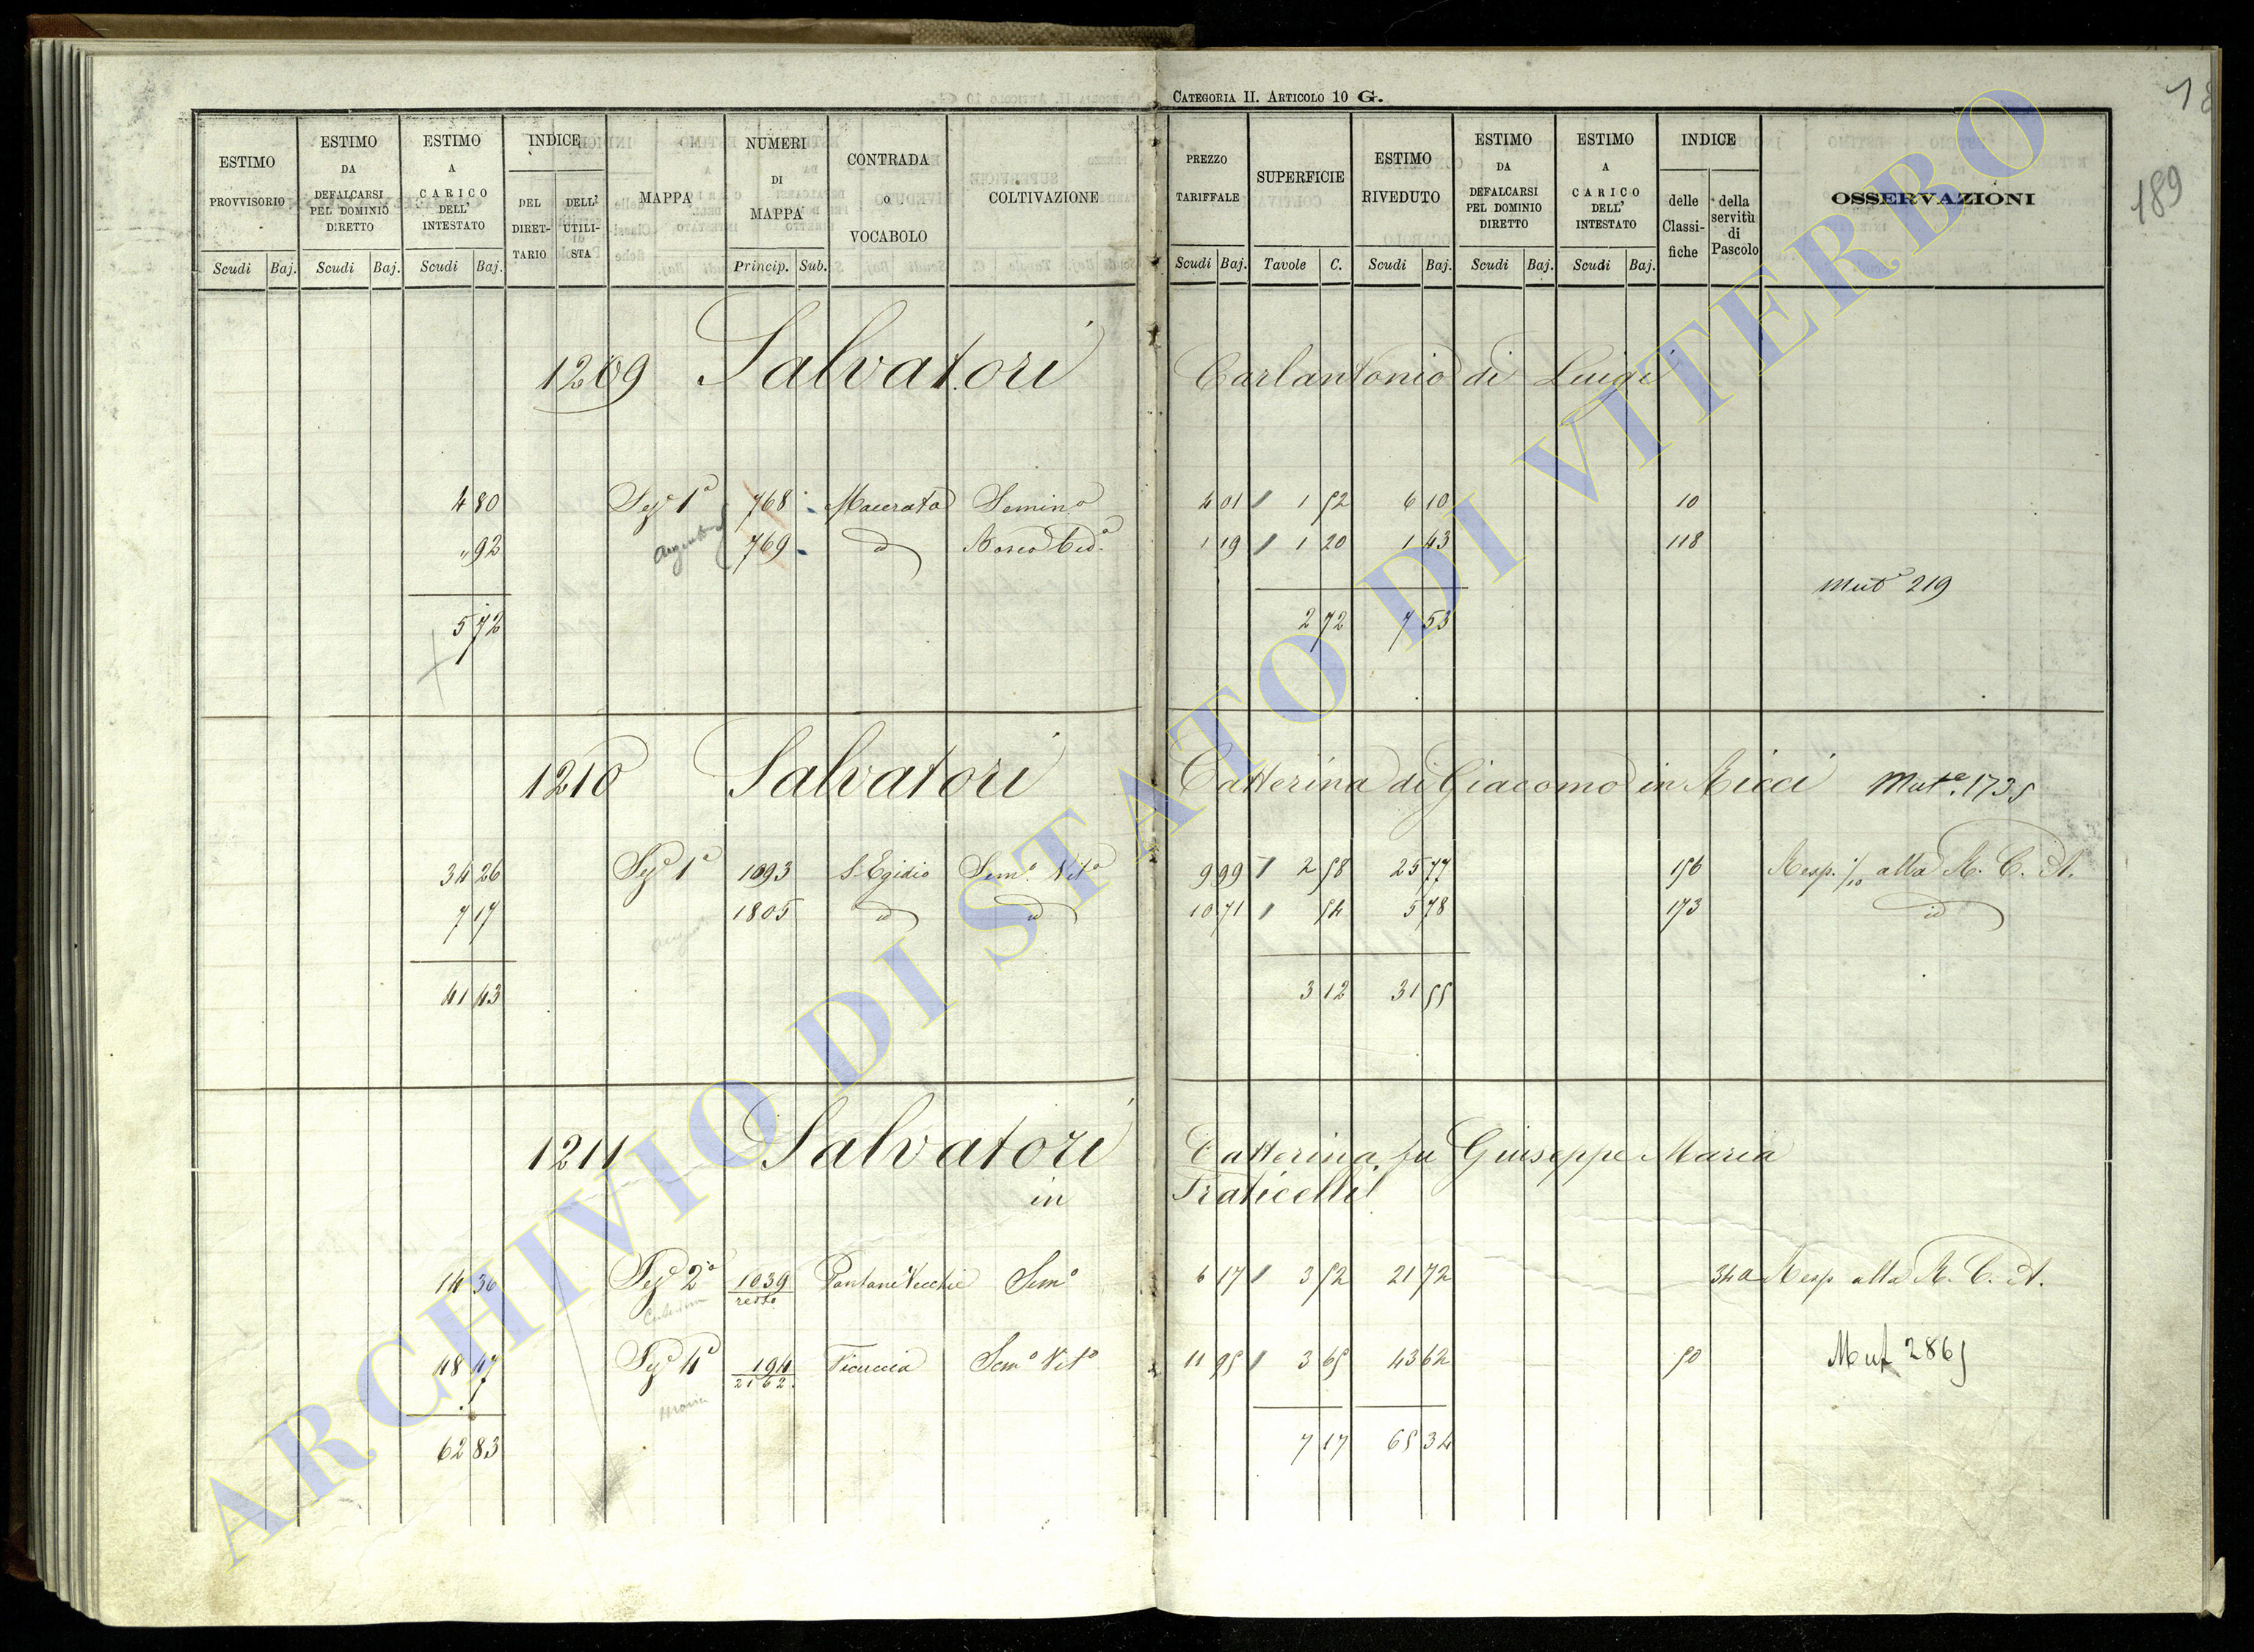 CATEGORIA II. ARTICOLO 10 G.
189
ESTIMO PROVVISORIO Scudi Baj.
ESTIMO DA DEFALCARSI PEL DOMINIO DIRETTO Scudi Baj.
ESTIMO A CARICO DELL' INTESTATO Scudi Baj.
INDICE DEL DIRET-TARIO DELL' UTILI-STA
MAPPA
NUMERI DI MAPPA Princip. Sub.
CONTRADA o VOCABOLO
COLTIVAZIONE
PREZZO TARIFFALE Scudi Baj.
SUPERFICIE Tavole C.
ESTIMO RIVEDUTO Scudi Baj.
ESTIMO DA DEFALCARSI PEL DOMINIO DIRETTO Scudi Baj.
ESTIMO A CARICO DELL' INTESTATO Scudi Baj.
INDICE delle Classi-fiche della servitù di Pascolo
OSSERVAZIONI
1209 Salvatori Carlantonio di Luigi
4 80 Sez.e 1a 768 Macerata Semin.o 4 01 1 52 6 10 10
" 92 769 id Bosco Ced.o 1 19 1 20 1 43 118
Mut.e 219
5 72 2 72 7 53
1210 Salvatori Catterina di Giacomo in Ricci Mut.e 1735
34 26 Sez.e 1a 1093 S. Egidio Sem.o Vit.o 9 99 2 58 25 77 156 Resp. 1/10 alla R. C. A.
7 17 1805 id id 10 71 54 5 78 173 id
41 43 3 12 31 55
1211 Salvatori Catterina fu Giuseppe Maria
in Fraticelli
14 36 Sez.e 2a 1039 resto Pantane Vecchie Sem.o 6 17 3 52 21 72 340 Resp alla R. C. A.
48 47 Sez.e 4a 194 2162 Vicuccia Sem.o Vit.o 11 95 3 65 43 62 50 Mut 2865
62 83 7 17 65 34
ARCHIVIO DI STATO DI VITERBO